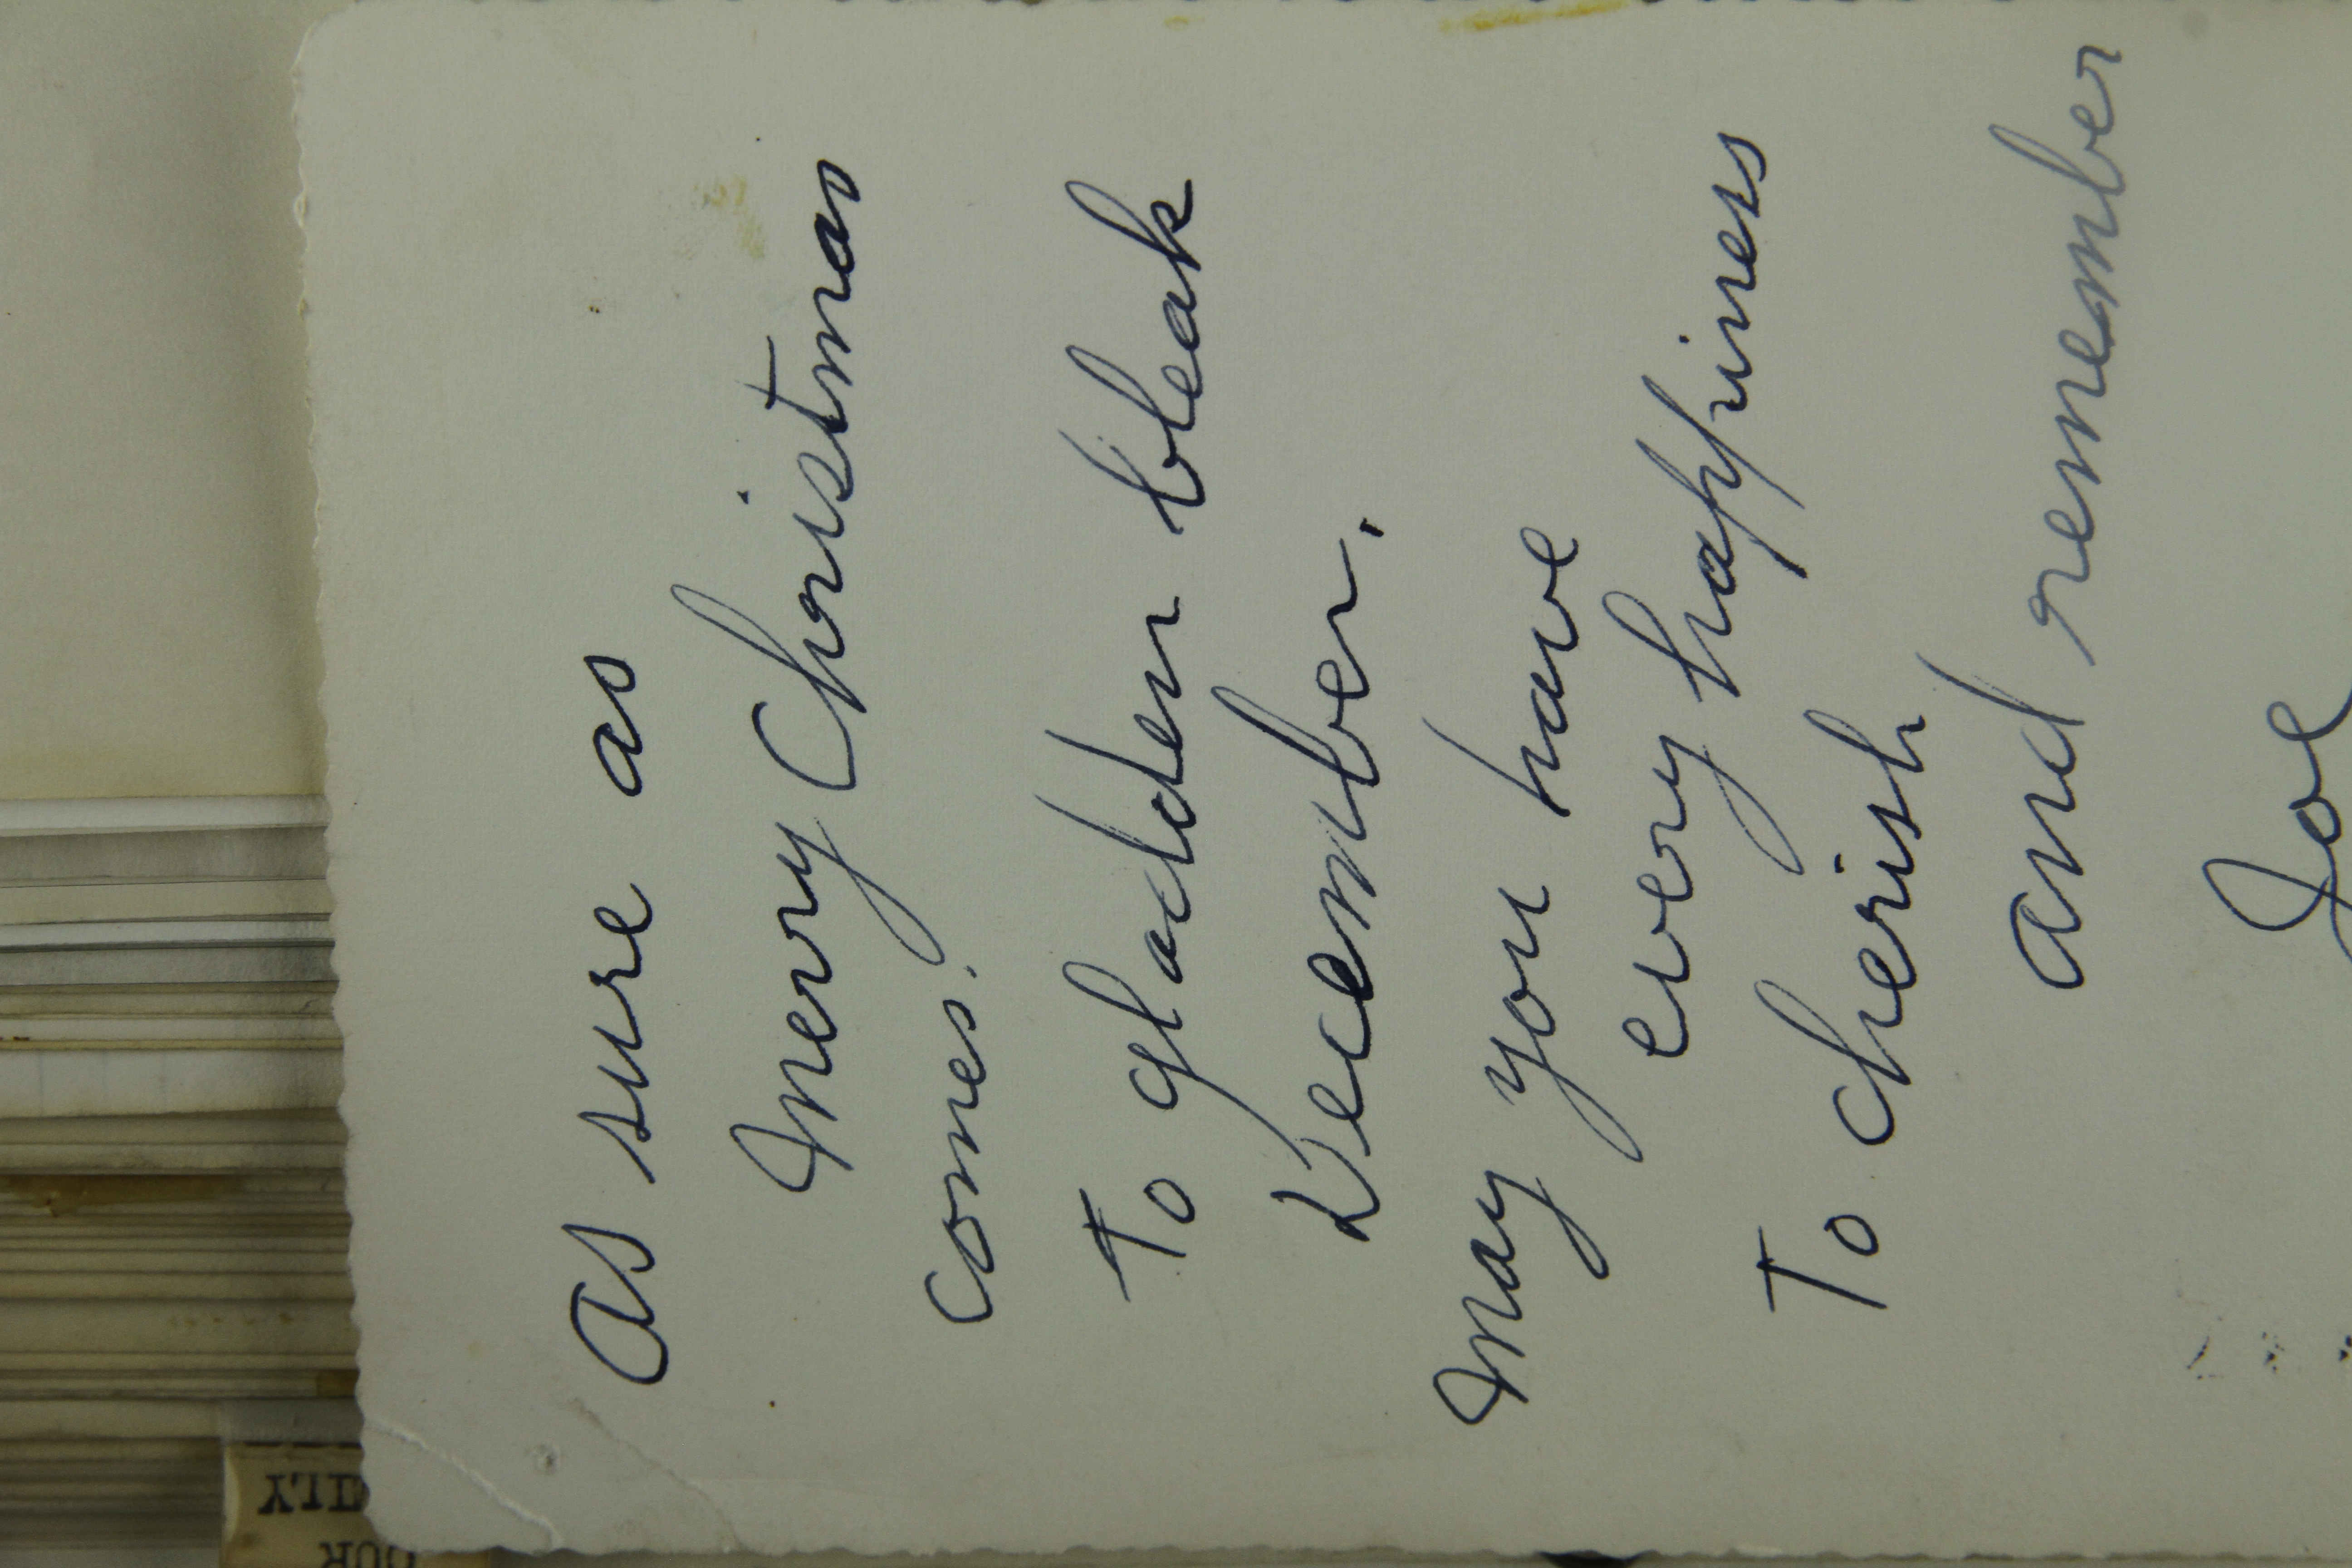 As sure as
Merry Christmas
comes.
To gladden bleak
December.
May you have
every happiness
To cherish
and remember
Joe
OUR
ILY